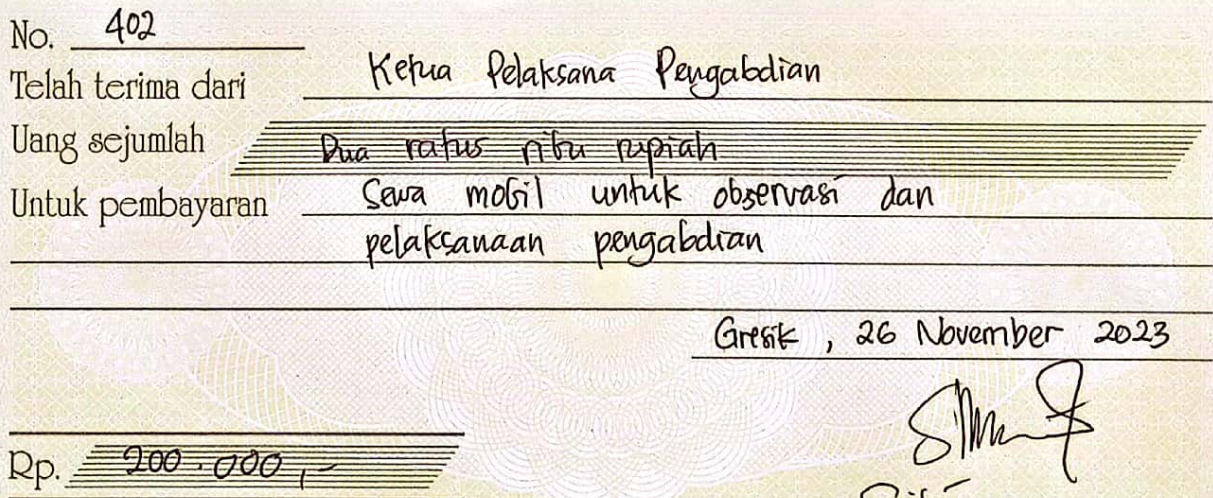 No. 402
Telah terima dari Ketua Pelaksana Pengabdian
Uang sejumlah Dua ratus ribu rupiah
Untuk pembayaran Sewa mobil untuk observasi dan
pelaksanaan pengabdian
Gresik , 26 November 2023
Rp. 200.000,-